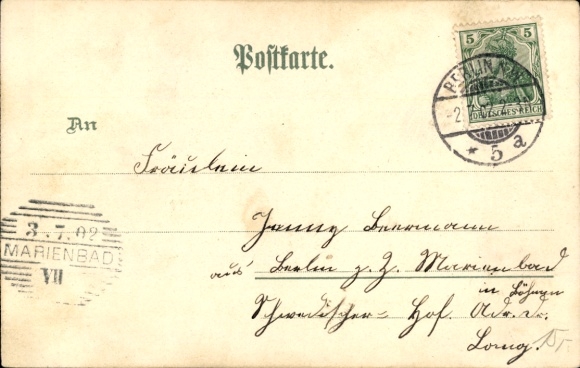 Postkarte.
5 5
DEUTSCHES REICH
BERLIN N.W.
* 5 a
An
Fräulein
3.7.02
MARIENBAD
VII
Jenny Beermann
aus Berlin z. Z. Marienbad
in Böhmen
Schwedischer= Hof Adr. Dr.